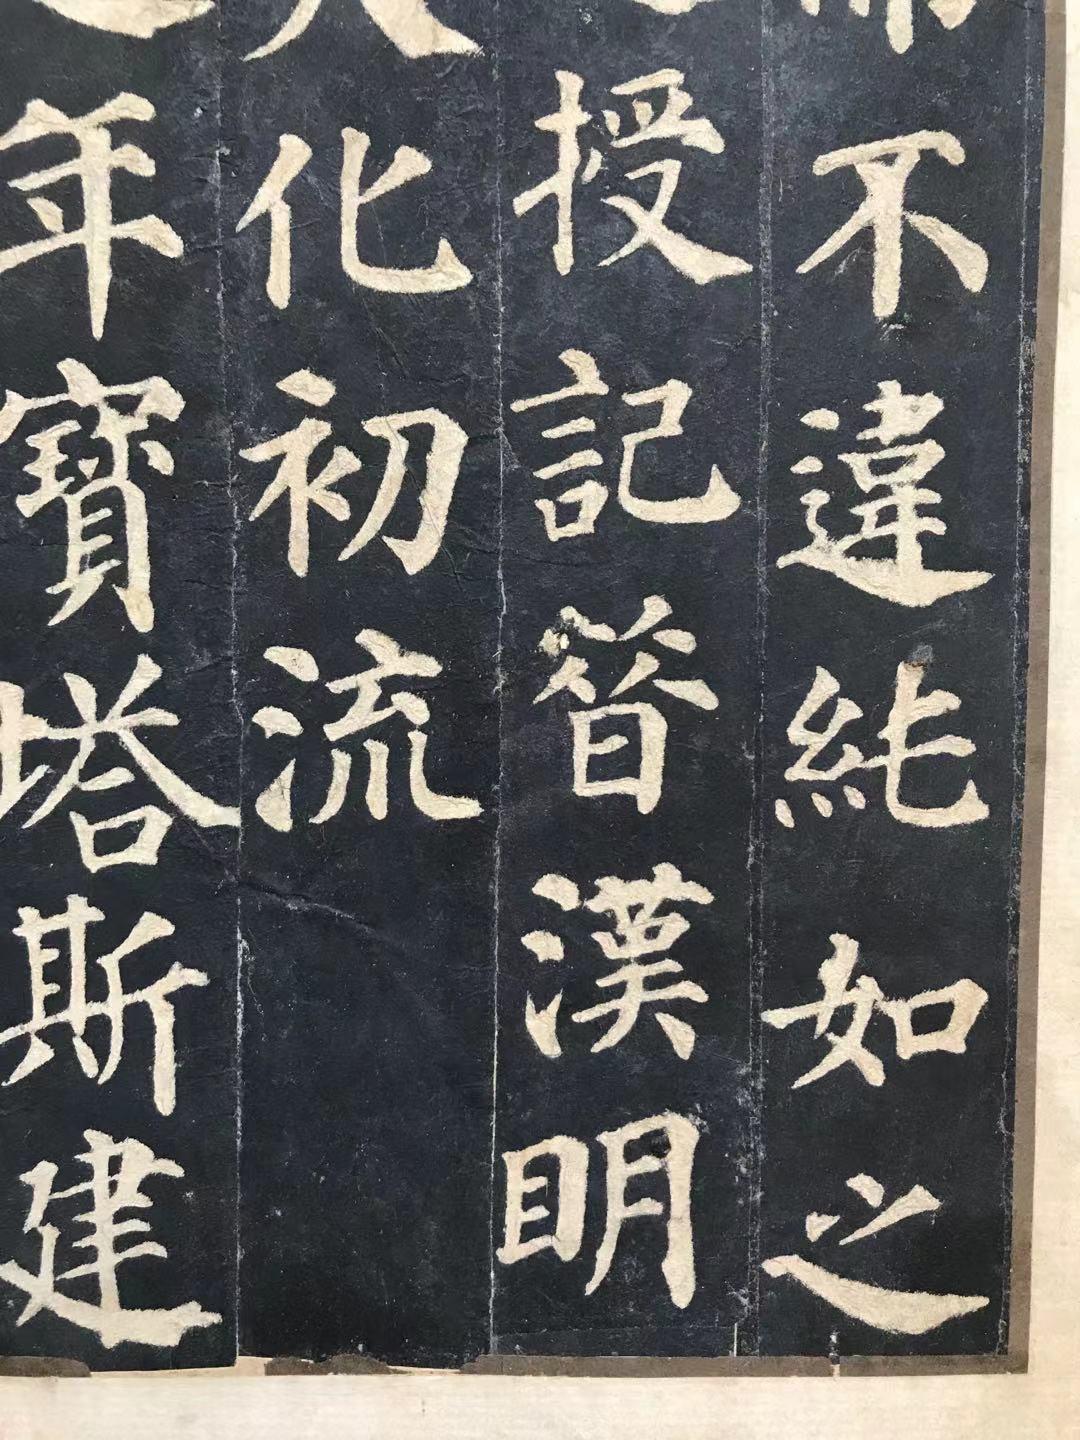 不違純如之
授記㫺漢眀
化初流
年寶塔斯建